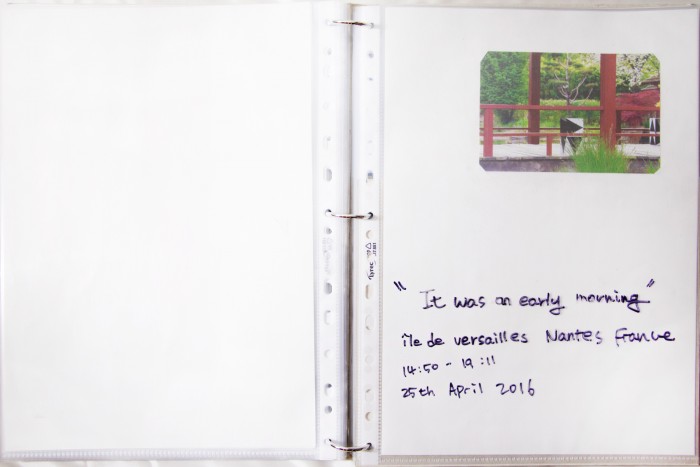 "It was an early morning"
île de versailles Nantes France
14:50 - 19:11
25th April 2016